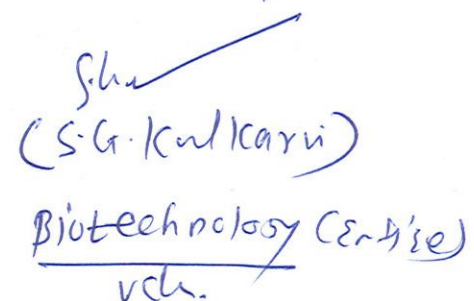 (S.G. Kulkarni)
Biotechnology (Entire)